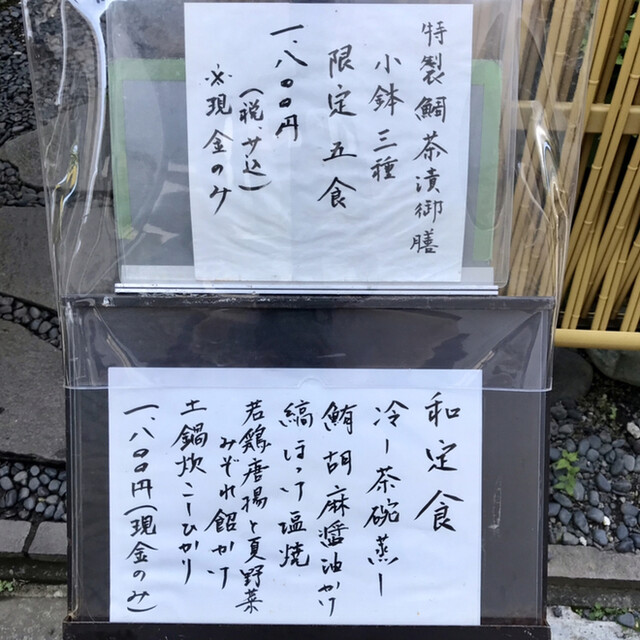 特製鯛茶漬御膳
小鉢三種
限定五食
一、八〇〇円
(税、サ込)
※現金のみ
和定食
冷ー茶碗蒸ー
鮪胡麻醤油かけ
縞ほっけ塩焼
若鶏唐揚と夏野菜
みぞれ餡かけ
土鍋炊こしひかり
一、八〇〇円(現金のみ)